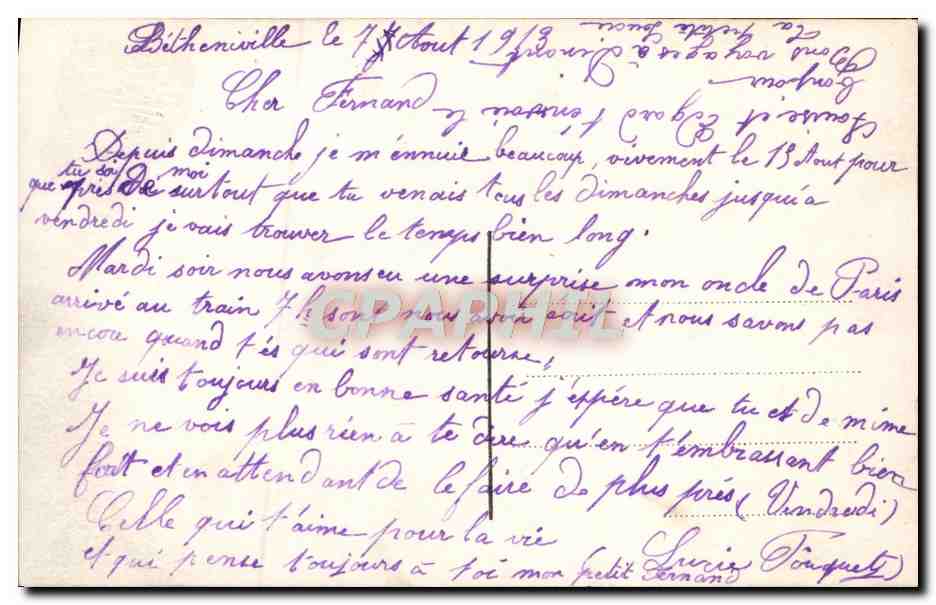 Bétheniville le 7 Août 19
Cher Fernand
Depuis dimanche je m'ennuie beaucoup, vivement le 15 Aout pour
tu sai moi
que près de surtout que tu venais tous les dimanches jusqu'a
vendredi je vais trouver le temps bien long.
Mardi soir nous avons eu une surprise mon oncle de Paris
arrivé au train 7h sans nous avoir écrit et nous savons pas
encore quand t'es qui sont retourne,
Je suis toujours en bonne santé j'éppére que tu et de mime
Je ne vois plus rien à te dire qu'en t'embrassant bien
foit et en attendant de le faire de plus près (Vendredi)
Celle qui t'aime pour la vie
et qui pense toujours à toi mon (petit Fernand)
Lucie Fouquet
Louise et Edgard t'envoie le
Bonjour
Bons voyages à Dinard
La petite Lucie
CPAPHIL